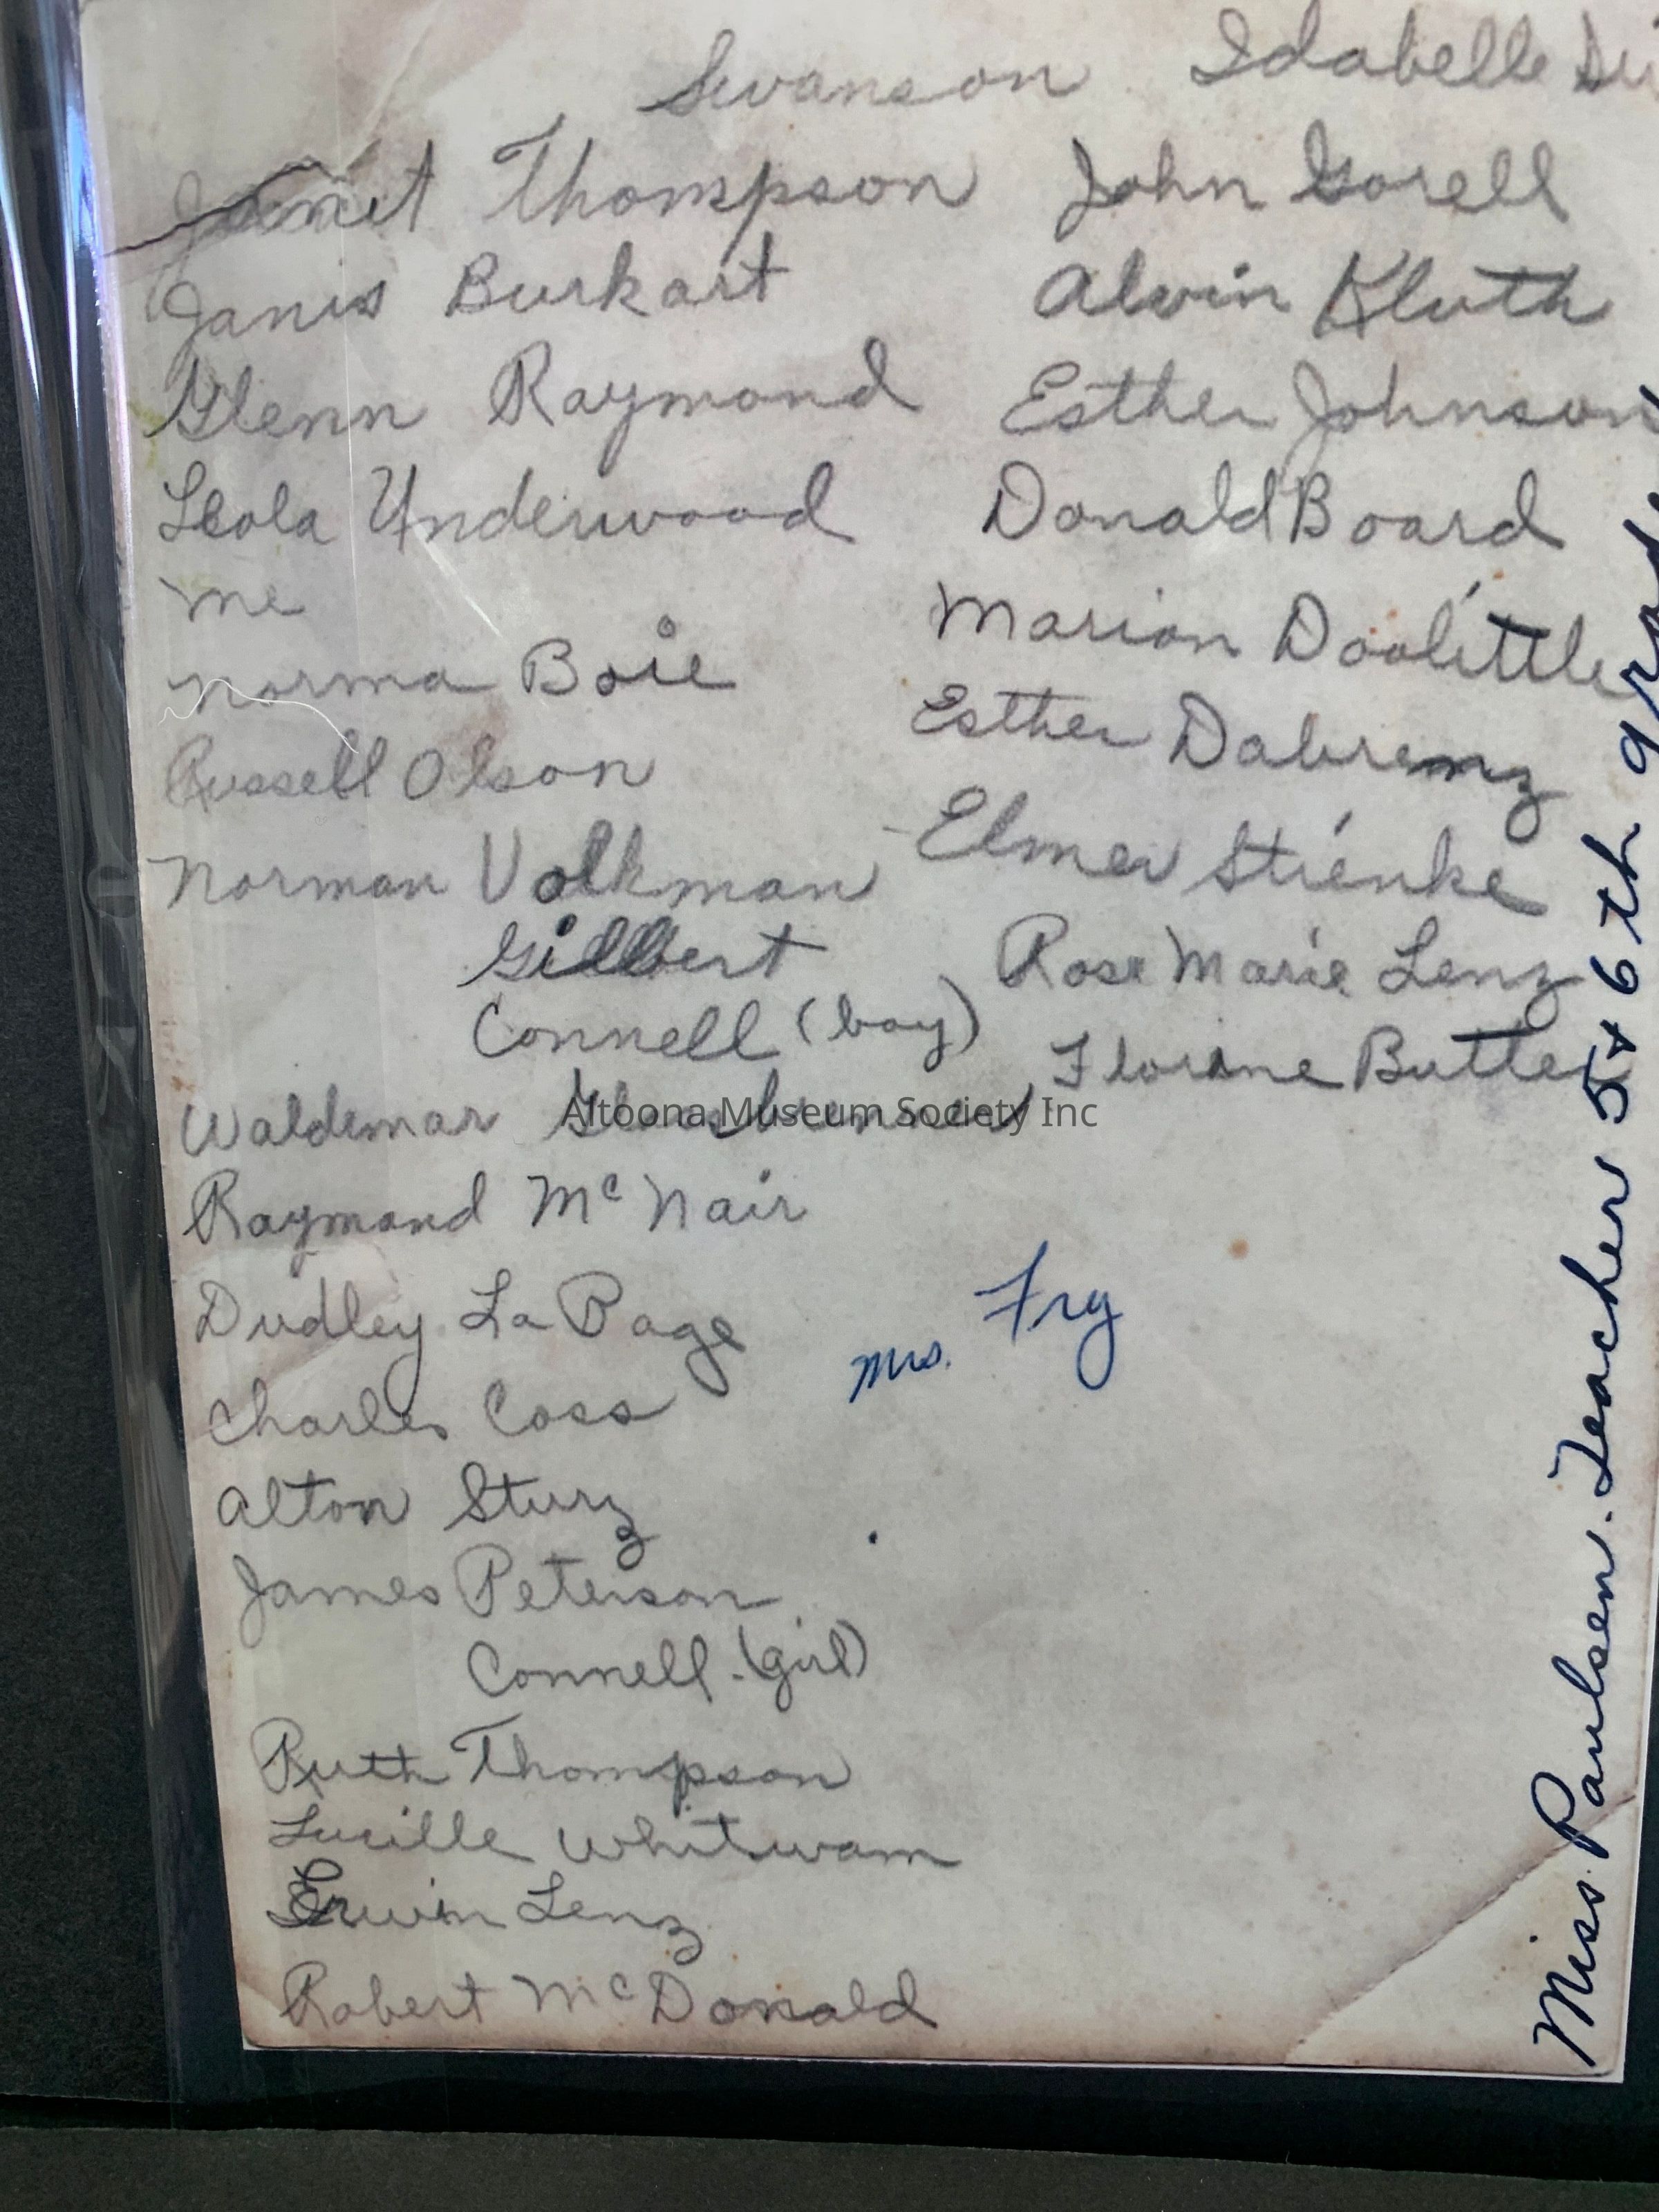 Swanson
Janet Thompson
Janis Burkart
Glenn Raymond
Leola Underwood
me
Norma Boie
Russell Olson
Norman Volkman
Gilbert
Connell (boy)
Waldemar
Raymond McNair
Dudley LaPage
Charles Coss
Alton Sturz
James Peterson
Connell (girl)
Ruth Thompson
Lucille Whitwam
Erwin Lenz
Robert McDonald
Idabelle
John Gorell
Alvin Kluth
Esther Johnson
Donald Board
Marion Doolittle
Esther
Elmer Stienke
Rose Marie Lenz
Florine Butler
Mrs. Fry
Miss Paulsen. Teacher 5 + 6th grade
Altoona Museum Society Inc